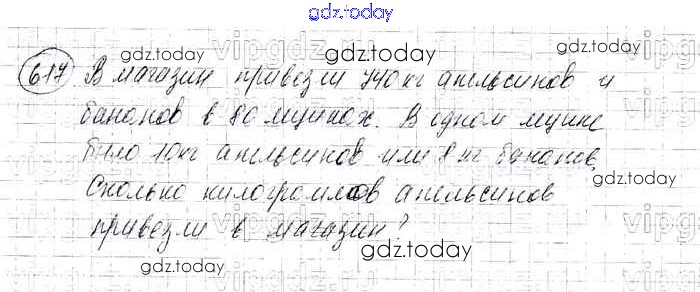 gdz.today
617 В магазин привезли 740 кг апельсинов и
gdz.today
бананов в 80 ящиках. В одном ящике
было 10 кг апельсинов или 8 кг бананов,
gdz.today
Сколько килограммов апельсинов
привезли в магазин?
gdz.today
gdz.today